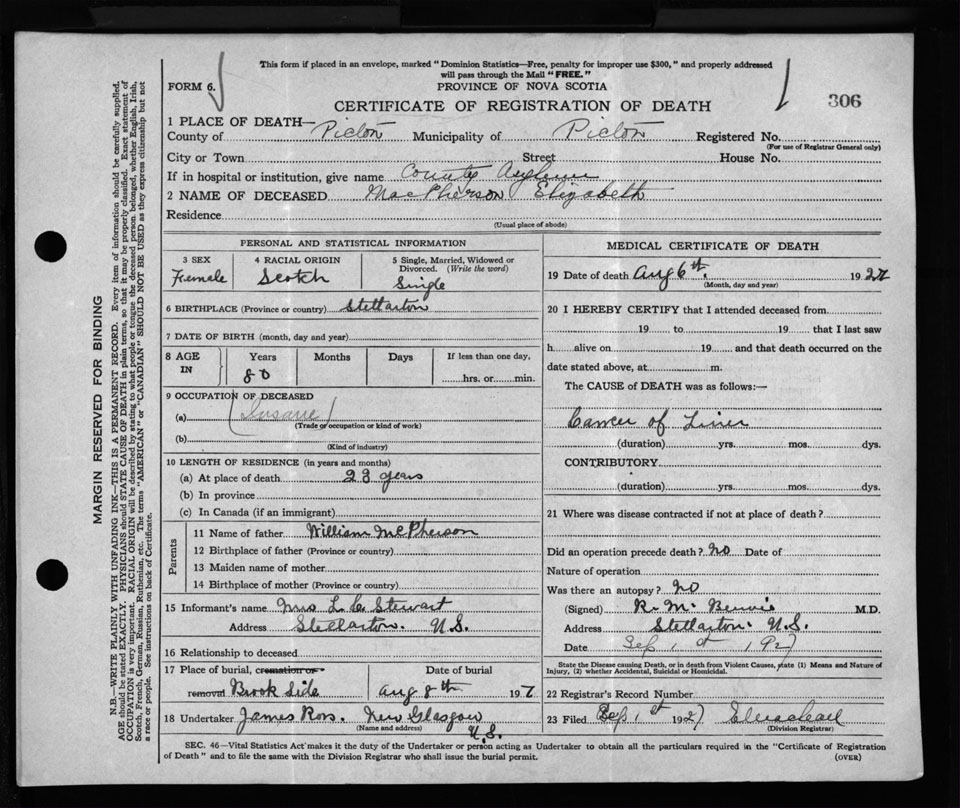 This form if placed in an envelope, marked "Dominion Statistics—Free, penalty for improper use $300," and properly addressed
will pass through the Mail "FREE."
FORM 6.
PROVINCE OF NOVA SCOTIA
CERTIFICATE OF REGISTRATION OF DEATH
306
1 PLACE OF DEATH—
County of Pictou Municipality of Pictou Registered No.
(For use of Registrar General only)
City or Town Street House No.
If in hospital or institution, give name County Asylum
2 NAME OF DECEASED MacPherson Elizabeth
Residence
(Usual place of abode)
PERSONAL AND STATISTICAL INFORMATION
3 SEX 4 RACIAL ORIGIN 5 Single, Married, Widowed or
Divorced. (Write the word)
Female Scotch Single
6 BIRTHPLACE (Province or country) Stellarton
7 DATE OF BIRTH (month, day and year)
8 AGE IN Years Months Days If less than one day,
80 hrs. or min.
9 OCCUPATION OF DECEASED
(a) (Insane)
(Trade or occupation or kind of work)
(b)
(Kind of industry)
10 LENGTH OF RESIDENCE (in years and months)
(a) At place of death 23 years
(b) In province
(c) In Canada (if an immigrant)
Parents
11 Name of father William McPherson
12 Birthplace of father (Province or country)
13 Maiden name of mother
14 Birthplace of mother (Province or country)
15 Informant's name Mrs L. C. Stewart
Address Stellarton. N.S.
16 Relationship to deceased
17 Place of burial, cremation or Date of burial
removal Brook Side Aug 8th 1927
18 Undertaker James Ross. New Glasgow
(Name and address) N.S.
MEDICAL CERTIFICATE OF DEATH
19 Date of death Aug 6th. 1927
(Month, day and year)
20 I HEREBY CERTIFY that I attended deceased from
19 to 19 that I last saw
h alive on 19 and that death occurred on the
date stated above, at m.
The CAUSE of DEATH was as follows:—
Cancer of Liver
(duration) yrs. mos. dys.
CONTRIBUTORY
(duration) yrs. mos. dys.
21 Where was disease contracted if not at place of death?
Did an operation precede death? no Date of
Nature of operation
Was there an autopsy? no
(Signed) R. M. Benvie M.D.
Address Stellarton. N.S.
Date Sep 1st, 1927
State the Disease causing Death, or in death from Violent Causes, state (1) Means and Nature of
Injury, (2) whether Accidental, Suicidal or Homicidal.
22 Registrar's Record Number
23 Filed Sep 1st 1927
(Division Registrar)
SEC. 46—Vital Statistics Act makes it the duty of the Undertaker or person acting as Undertaker to obtain all the particulars required in the "Certificate of Registration
of Death" and to file the same with the Division Registrar who shall issue the burial permit.
(OVER)
MARGIN RESERVED FOR BINDING
N.B.—WRITE PLAINLY WITH UNFADING INK—THIS IS A PERMANENT RECORD. Every item of information should be carefully supplied.
AGE should be stated EXACTLY. PHYSICIANS should STATE CAUSE OF DEATH in plain terms, so that it may be properly classified. Exact statement of
OCCUPATION is very important. RACIAL ORIGIN will be described by stating to what people or tongue the deceased person belonged, whether English, Irish,
Scotch, French, German, Russian, Ruthenian, etc. The terms "AMERICAN" or "CANADIAN" SHOULD NOT BE USED as they express citizenship but not
a race or people. See instructions on back of Certificate.